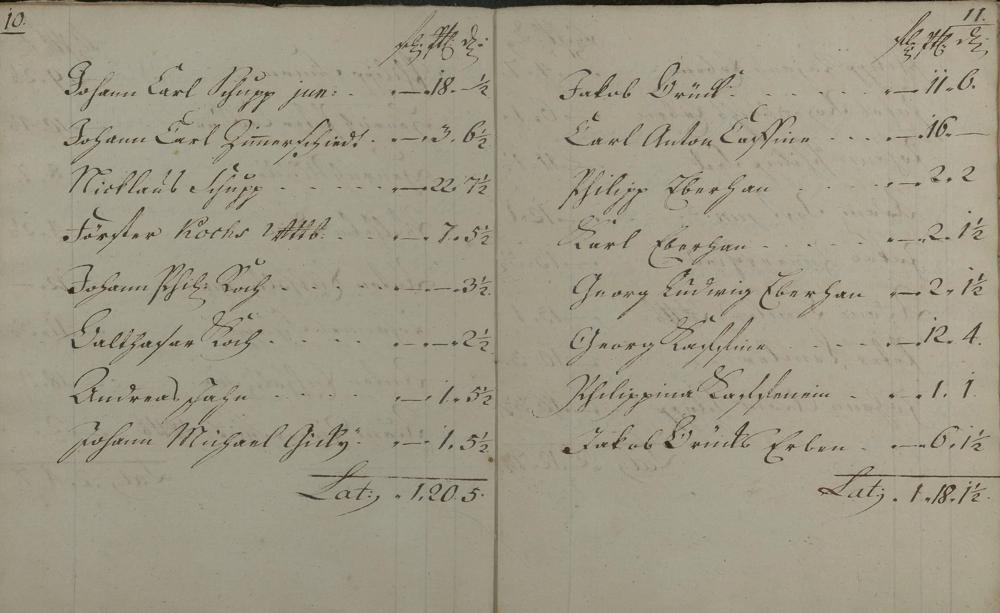 10.
fl: Alb: d:
Johann Carl Schupp jun: . — 18. — ½
Johann Carl Zimmerschiedt . — 3. 6½
Nicklaus Schupp . . . . . — 22. 7½
Förster Kochs . . — 7. 5½
Johann Phil: Koch . . . — — 3½
Balthasar Koch . . . . — — 2½
Andreas Jahn . . . . . — 1. 5½
Johann Michael . — 1. 5½
Lat: . 1. 20. 5.
11.
fl: Alb: d:
Jakob Brück . . . . . — 11. 6.
Carl Anton Cassine . . . — 16. —
Philipp Eberhan . . . . — 2. 2
Karl Eberhan . . . . . — 2. 1½
Georg Ludwig Eberhan — 2. 1½
Georg Kassine . . . . . — 12. 4.
Philippina . — 1. 1
Jakob Brücks Erben . — 6. 1½
Lat: . 1. 18. 1½